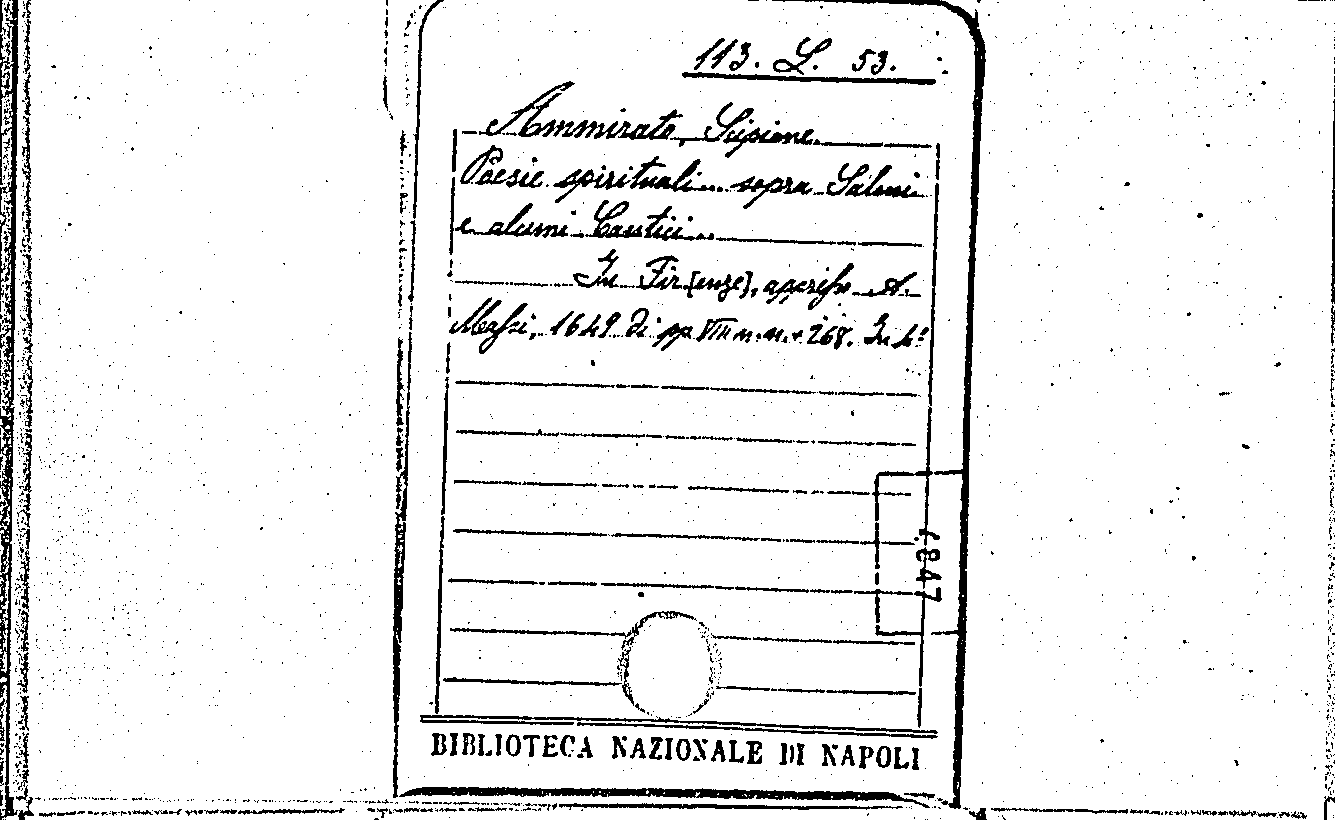 113. L. 53.
Ammirato, Scipione
Poesie spirituali... sopra Salmi
e alcuni Cantici...
In Fir[enze], appresso A.
Massi, 1649 di pp. VIII n.n. + 268. In 4°
4847
BIBLIOTECA NAZIONALE DI NAPOLI